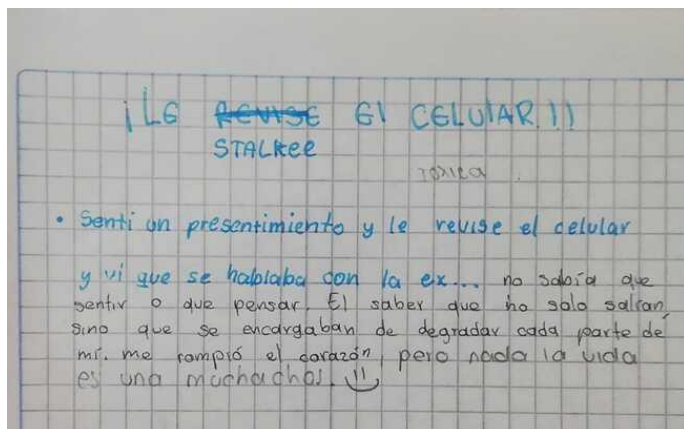 ¡LE REVISE El CELULAR!!
STALKEE
TOXICA
• Senti un presentimiento y le revise el celular
y vi que se hablaba con la ex... no sabía que
sentir o que pensar. El saber que no solo salían,
sino que se encargaban de degradar cada parte de
mí. me rompió el corazón, pero nada la vida
es una muchachos.